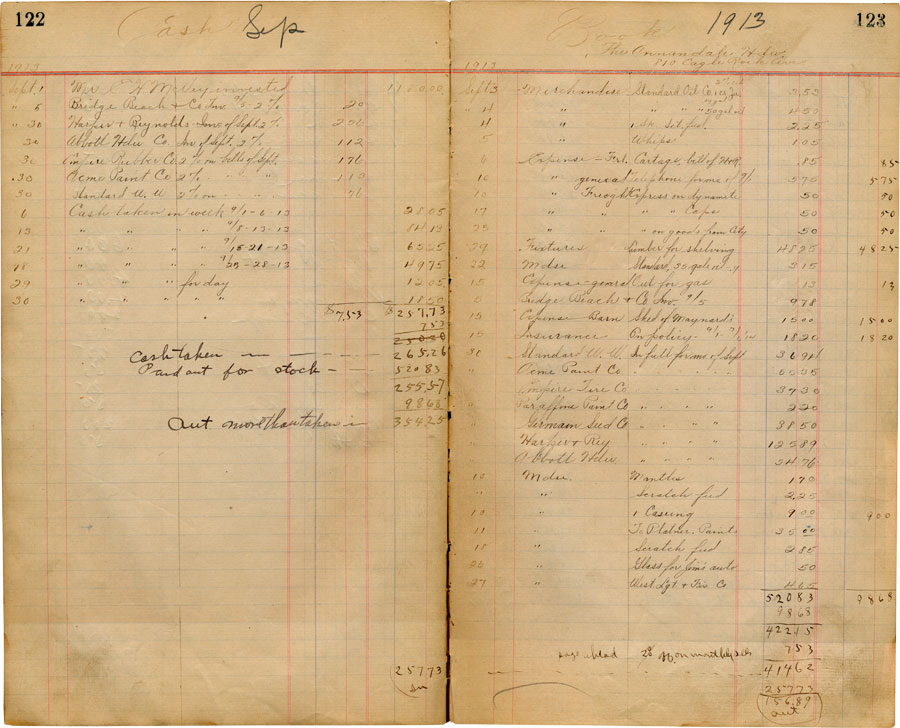 122
Cash Sep
1913
Sept. 1 Mr. C H invested
" 5 Bridge Beach & Co Inv 9/5 2% 20
" 30 Harper & Reynolds - Inv of Sept. 2%
30 Abbott Hdw Co. Inv of Sept. 2% 112
30 Empire Rubber Co 2% on bills of Sept. 176
30 Acme Paint Co 2% " " 110
30 Standard W. W 2% on " 76
6 Cash taken in week 9/1-6-13 2805
" " " " 9/8-13-13
21 " " " " 9/15-21-13
" " " " -28-13 4975
29 " " " for day 1205
30 " " " "
$7.53 $257.73
753
cash taken 26526
Paid out for stock 52083
25557
9868
Out more than taken in 35425
25773
123
Book 1913
The Annandale Hdw.
810 Eagle Rock Ave
1913
Sept 3 Merchandise Standard Oil Co
" 4 " " " " 50 gal oil 450
" 4 " 2.25
5 " Whips 105
6 Expense - Frt. Cartage, bill of 85 85
10 " general Telephone for mo of 9/1 575 575
10 " Freight Express on dynamite 50 50
17 " " " " Caps 50 50
25 " " " on goods from City 50 50
29 Fixtures Lumber for shelving 4825 4825
22 Mdse Standard, 35 gals oil 315
15 Expense-general Oil for gas 13 13
5 Bridge Beach & Co Inv. 9/5 978
15 Expense Barn Shed of Maynard's 1500 1500
15 Insurance On policy 1820 1820
30 Standard W. W. In full for mo of Sept
" Acme Paint Co. " " " "
" Empire Tire Co " " " " 3930
" Paraffine Paint Co " " " " 220
" Germain Seed Co " " " " 3850
" Harper & Rey " " " " 12589
" Abbott Hdw " " " " 3476
10 Mdse. Mantles 170
" " Scratch feed 225
10 " 1 Casing 900 900
11 " To Platner. Paint 3500
18 " Scratch feed 285
26 " Glass for Jim's auto 50
27 " West. Lgt & Fix Co 465
52083 9868
9868
42215
ahead 2% off on monthly bills 753
41462
25773
15689
out